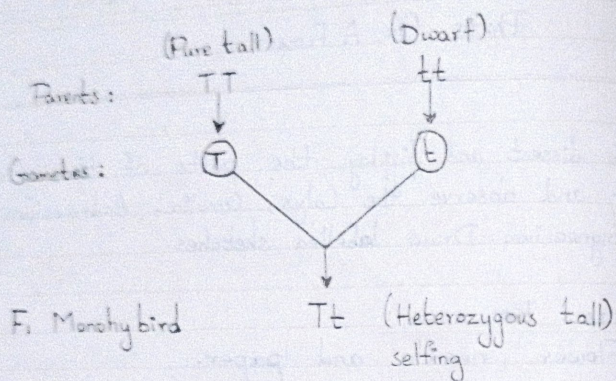 (Pure tall) (Dwarf)
Parents: TT tt
Gametes: T t
F₁ Monohybird Tt (Heterozygous tall)
selfing